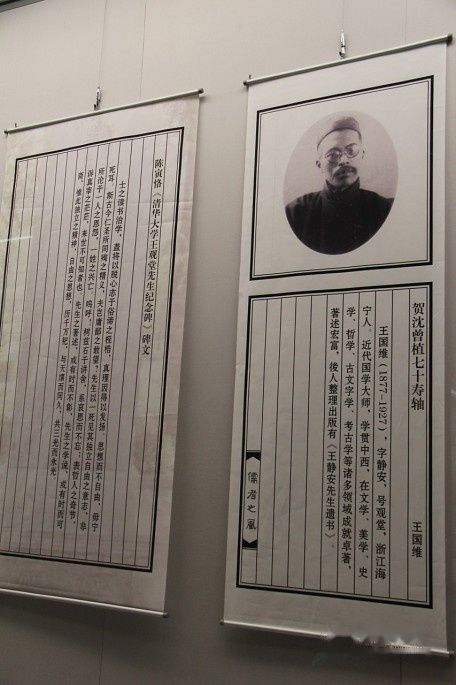 贺沈曾植七十寿轴
王国维
王国维（1877-1927），字静安，号观堂，浙江海
宁人。近代国学大师，学贯中西，在文学、美学、史
学、哲学、古文字学、考古学等诸多领域成就卓著，
著述宏富，後人整理出版有《王静安先生遗书》。
儒者之风
陈寅恪《清华大学王观堂先生纪念碑》碑文
士之读书治学，盖将以脱心志于俗谛之桎梏，真理因得以发扬。思想而不自由，毋宁
死耳。斯古今仁圣所同殉之精义，夫岂庸鄙之敢望？先生以一死见其独立自由之意志，非
所论于一人之恩怨，一姓之兴亡。呜呼！树兹石于讲舍，系哀思而不忘。表哲人之奇节，
诉真宰之茫茫。来世不可知者也。先生之著述，或有时而不彰，先生之学说，或有时而可
商。惟此独立之精神，自由之思想，历千万祀，与天壤而同久，共三光而永光